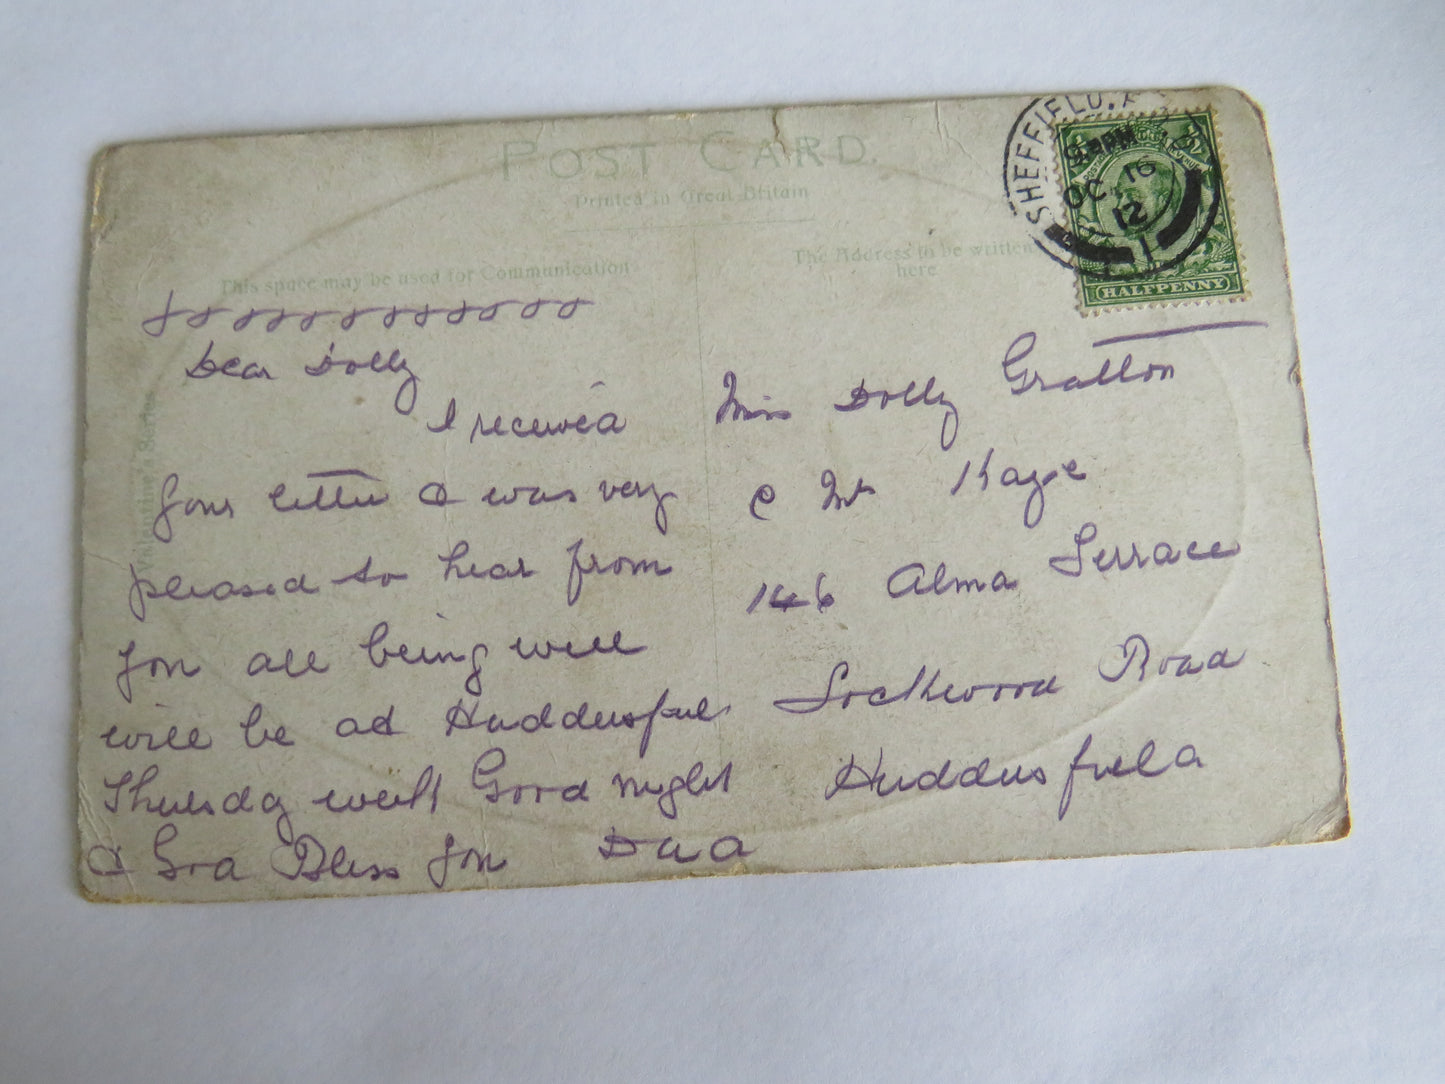 POST CARD.
Printed in Great Britain
This space may be used for Communication
The Address to be written
here
Valentine's Series
SHEFFIELD.
PM
OC 16
12
1
HALFPENNY
xxxxxxxxxxxx
Dear Dolly
I received
your letter & was very
pleased to hear from
you all being well
will be at Huddersfield
Thursday week Good night
& God Bless you Dad
Miss Dolly Gratton
c Mrs Kaye
146 Alma Terrace
Lockwood Road
Huddersfield